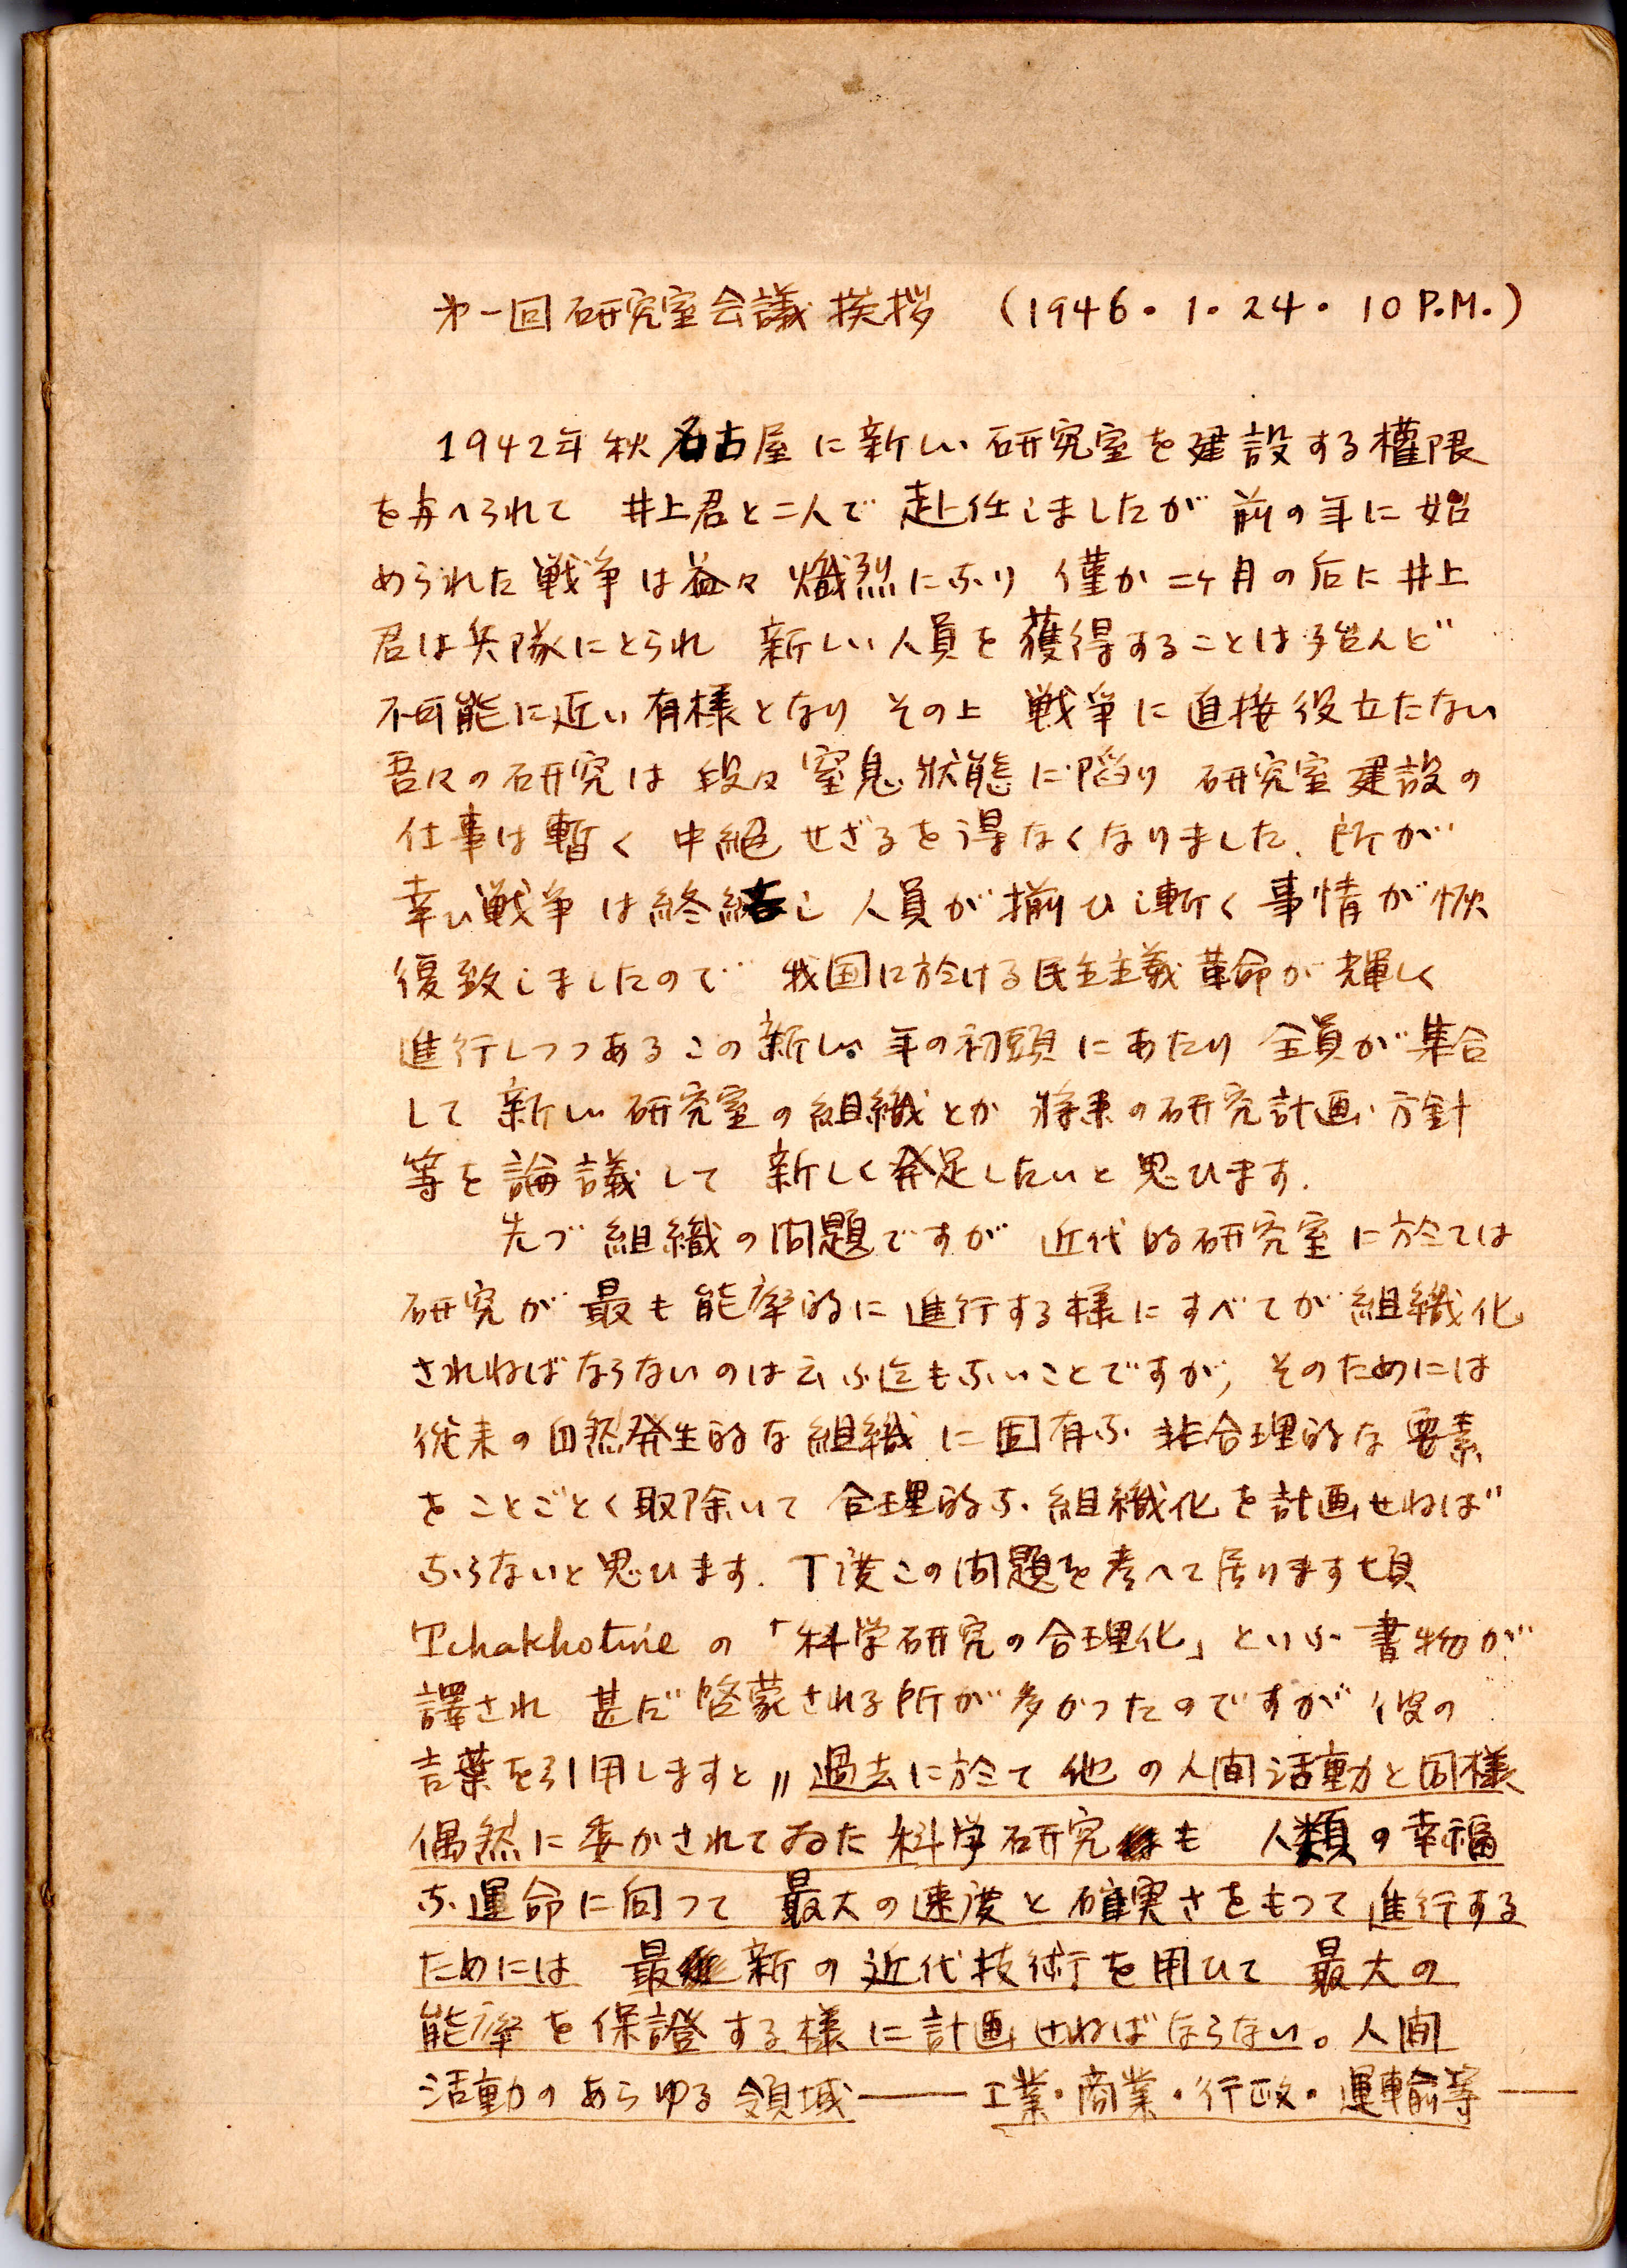 第一回研究室会議挨拶 (1946・1・24・10 P.M.)
1942年秋名古屋に新しい研究室を建設する權限
を与へられて 井上君と二人で赴任しましたが 前の年に始
められた戦争は益々熾烈になり 僅か二ヶ月の后に井上
君は兵隊にとられ 新しい人員を獲得することは殆んど
不可能に近い有様となり その上 戦争に直接役立たない
吾々の研究は 段々窒息状態に陥り 研究室建設の
仕事は暫く 中絶せざるを得なくなりました. 所が
幸い戦争は終結し 人員が揃ひ漸く事情が恢
復致しましたので 我国に於ける民主主義革命が輝しく
進行しつつあるこの新しい年の初頭にあたり 全員が集合
して 新しい研究室の組織とか 将来の研究計画・方針
等を論議して 新しく発足したいと思ひます.
先づ 組織の問題ですが 近代的研究室に於ては
研究が最も能率的に進行する様にすべてが組織化
されねばならないのは云ふ迄もないことですが, そのためには
従来の自然発生的な組織に固有な非合理的な要素
をことごとく取除いて 合理的な組織化を計画せねば
ならないと思ひます. 丁度この問題を考へて居ります頃
Tchakhotine の「科学研究の合理化」といふ書物が
譯され 甚だ啓蒙される所が多かつたのですが 彼の
言葉を引用しますと〃過去に於て他の人間活動と同様
偶然に委かされてゐた科学研究も 人類の幸福
な運命に向つて 最大の速度と確実さをもつて進行する
ためには 最新の近代技術を用ひて 最大の
能率を保證する様に計画せねばならない。人間
活動のあらゆる領域――工業・商業・行政・運輸等――